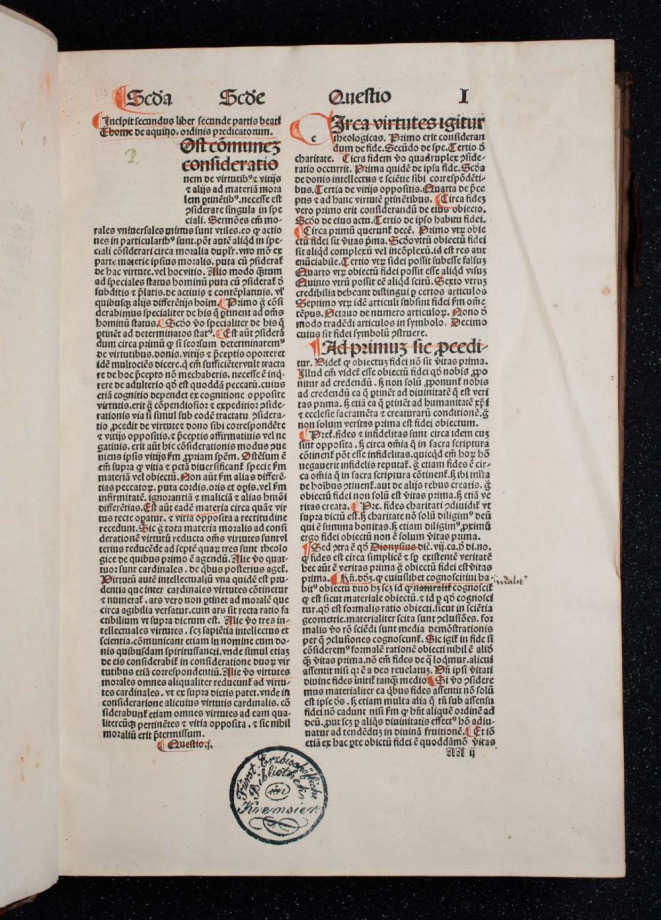 Scḋa Scḋe Questio I
Incipit secundus liber secunde partis beati
Thome de aquino. ordinis predicatorum.
Ost cōmunez
consideratio
nem de virtutibꝰ ⁊ vitijs
⁊ alijs ad materiā mora
lem ptinētibꝰ. necesse est
ꝯsiderare singula in spe
ciali. Sermões em̄ mo-
rales vniuersales minus sunt vtiles. eo ꝙ actio
nes in particularibꝰ sunt. pōt autē aliqd in spe-
ciali cōsiderari circa moralia duplr̄. vno mō ex
parte materie ipsius moralis. puta cū ꝯsiderat̄
de hac virtute. vel hoc vitio. Alio modo q̄tum
ad speciales status hominū puta cū ꝯsiderat̄ ḋ
subditis ⁊ p̄latis. de actiuis ⁊ cōtēplatiuis. vl̄
quibusq alijs differētijs hoīm. Primo ḡ cōsi
derabimus specialiter de his q̄ ptinent ad oēs
hominū status. Scḋo ṽo specialiter de his q̄
ptinēt ad determinatos statꝰ. Est aūt ꝯsiderā
dum circa primū ꝙ si seorsum determinarem
de virtutibus. donis. vitijs ⁊ p̄ceptis oporteret
idē multociēs dicere. q em̄ sufficiēter vult tracta
re de hoc p̄cepto nō mechaberis. necesse ē inq
rere de adulterio qḋ est quoddā peccatū. cuius
etiā cognitio dependet ex cognitione opposite
virtutis. erit ḡ cōpendiosior ⁊ expeditior ꝯside-
rationis via si simul sub eodē tractatu ꝯsidera-
tio ꝓcedit de virtute ⁊ dono sibi correspondēte
⁊ vitijs oppositis. ⁊ p̄ceptis affirmatiuis vel ne
gatiuis. erit aūt hic cōsiderationis modus ꝯue
niens ipsis vitijs fm ꝓpiam spēm. Ostēsum ē
em̄ supra ꝙ vitia ⁊ pctā diuersificant̄ specie fm
materiā vel obiectū. Non aūt fm alias differē-
tias peccatorꝝ. puta cordis. oris et opis. vel fm
infirmitatē. ignorantiā ⁊ malicia ⁊ alias hmōi
differētias. Est aūt eadē materia circa quā vir
tus recte opatur. ⁊ vitia opposita a rectitudine
recedunt. Sic ḡ tota materia moralis ad consi
derationē virtutū reducta omēs virtutes sunt vl
terius reducēde ad septē quaꝝ tres sunt theolo
gice de quibus primo ē agendū. Alie ṽo quat-
tuor sunt cardinales. de qbus posterius aget̄.
Virtutū autē intellectualiū vna quidē est pru-
dentia que inter cardinales virtutes cōtinetur
⁊ numerat̄. ars vero non ptinet ad moralē que
circa agibilia versatur. cum ars sit recta ratio fa
ctibilium vt supra dictum est. Alie ṽo tres in-
tellectuales virtutes. scz sapiētia intellectus et
scientia. cōmunicant etiam in nomine cum do-
nis quibusdam spiritussancti. vnde simul etiaz
de eis considerabit̄ in consideratione donorum vir
tutibus etiā correspondentiū. Alie ṽo virtutes
morales omnes aliqualiter reducunt̄ ad virtu-
tes cardinales. vt ex supra dictis patet. vnde in
consideratione alicuius virtutis cardinalis. cō
siderabunt̄ etiam omnes virtutes ad eam qua-
litercūq pertinētes ⁊ vitia opposita. ⁊ sic nihil
moraliū erit p̄termissum.
Questio .j.
c
Irca virtutes igitur
theologicas. Primo erit consideran
dum de fide. Secūdo de spe. Tertio ḋ
charitate. Circa fidem ṽo quadruplex ꝯside-
ratio occurrit. Prima quidē de ipsa fide. Scḋa
de donis intellectus ⁊ sciētie sibi correspōdēti-
bus. Tertia de vitijs oppositis. Quarta de p̄ce
ptis ad hanc virtutē ptinētibus. Circa fidez
vero primo erit considerandū de eius obiecto.
Scḋo de eius actu. Tertio de ipso habitu fidei.
Circa primū querunt̄ decē. Primo vtꝝ obie
ctū fidei sit v̄itas p̄ma. Scḋo vtrū obiectū fidei
sit aliqd complexū vel incōplexū. id est res aut
enūciabile. Tertio vtꝝ fidei possit subesse falsuz
Quarto vtꝝ obiectū fidei possit esse aliqd visuz
Quinto vtrū possit eē aliqd scitū. Sexto vtrus
credibilia debeant distingui p certos articulos
Septimo vtꝝ idē articuli subsint fidei fm omē
tēpus. Octauo de numero articuloꝝ. Nono ḋ
modo tradēdi articulos in symbolo. Decimo
cuius sit fidei symbolū ꝯstruere.
Ad primuz sic ꝓcedi-
tur. Videt̄ ꝙ obiectuz fidei nō sit v̄itas prima.
Illud em̄ videt̄ esse obiectū fidei qḋ nobis ꝓpo
nitur ad credendū. sꝫ non solū ꝓponunt̄ nobis
ad credendū ea q̄ ptinēt ad diuinitatē q̄ est veri
tas prima. sꝫ etiā ea q̄ ptinēt ad humanitatē xp̄i
⁊ ecclesie sacramēta ⁊ creaturarū conditionē. ḡ
non solum veritas prima est fidei obiectum.
Pret̄. fides ⁊ infidelitas sunt circa idem cuz
sint opposita. sꝫ circa omīa q̄ in sacra scriptura
cōtinent̄ pōt esse infidelitas. quicqd em̄ horꝝ hō
negauerit infidelis reputat̄. ḡ etiam fides ē cir-
ca omīa q̄ in sacra scriptura cōtinent̄. sꝫ ibi multa
de hoībus ꝯtinent̄. aut de alijs rebus creatis. ḡ
obiectū fidei non solū est v̄itas prima. sꝫ etiā ve
ritas creata. Pre. fides charitati ꝯdiuidit̄ vt
supra dictū est. sꝫ charitate nō solū diligim̄ deū
qui ē summa bonitas. sꝫ etiam diligim̄ ꝓximū
ergo fidei obiectū non ē solum veritas prima.
Sed ꝯtra ē qḋ Dionysius dic̄. vij. ca. ḋ di. no.
ꝙ fides est circa simplicē ⁊ sp existentē veritatē
hec aūt ē veritas prima ḡ obiectū fidei est v̄itas
prima. Rn̄. dḋz. ꝙ cuiuslibet cognoscitiui ha-
bitus obiectū duo hꝫ scꝫ id qḋ naturalit̄ cognoscit̄
qḋ est sicut materiale obiectū. ⁊ id p qḋ cognosci
tur. qḋ est formalis ratio obiecti. sicut in sciētia
geometrie. materialiter scita sunt ꝯclusiōes. for
malis ṽo rō sciēdi sunt media demōstrationis
per q̄ ꝯclusiones cognoscunt̄. Sic igit̄ in fide si
cōsiderem̄ formalē rationē obiecti nihil ē aliḋ
q̄ v̄itas prima. nō em̄ fides de q̄ loqmur. alicui
assentit nisi qr ē a deo reuelatuz. Vn̄ ipsi v̄itati
diuine fides initit̄ tanq̄ medio. Si ṽo ꝯsidere
mus materialiter ea qbus fides assentit nō solū
est ipse dō. sꝫ etiam multa alia q̄ tn̄ sub assensu
fidei nō cadunt nisi fm ꝙ hn̄t aliquē ordinē ad
deū. put scꝫ p aliqs diuinitatis effectꝰ hō adiu-
uatur ad tendēduz in diuinā fruitionē. Et iō
etiā ex hac pte obiectū fidei ē quodāmō v̄itas
AA ij
Fürst-Erzbischöfliche
Bibliothek
in
Kremsier